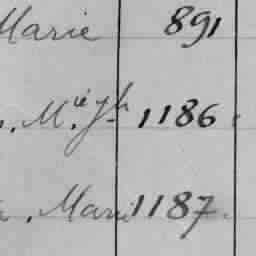 Marie 891
, M.ie Jh 1186
, Marie 1187